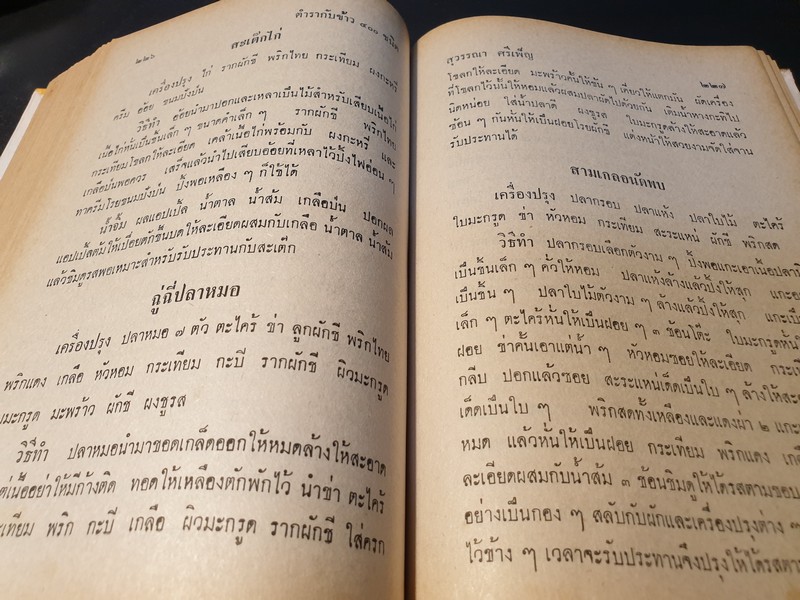 ๒๒๖ ตำรากับข้าว ๔๐๐ ชนิด
สะเต๊กไก่
เครื่องปรุง ไก่ รากผักชี พริกไทย กระเทียม ผงกะหรี่
ครีม อ้อย ขนมปังป่น
วิธีทำ อ้อยนำมาปอกและเหลาเป็นไม้สำหรับเสียบเนื้อไก่
เนื้อไก่หั่นเป็นชิ้นเล็ก ๆ ขนาดคำเล็ก ๆ รากผักชี พริกไทย
กระเทียมโขลกให้ละเอียด เคล้าเนื้อไก่พร้อมกับ ผงกะหรี่ และ
เกลือป่นพอควร เสร็จแล้วนำไปเสียบอ้อยที่เหลาไว้ปิ้งไฟอ่อน ๆ
ทาครีมโรยขนมปังป่น ปิ้งพอเหลือง ๆ ก็ใช้ได้
น้ำจิ้ม ผลแอปเปิ้ล น้ำตาล น้ำส้ม เกลือป่น ปอกผล
แอปเปิ้ลต้มให้เปื่อยตักขึ้นบดให้ละเอียดผสมกับเกลือ น้ำตาล น้ำส้ม
แล้วชิมดูรสพอเหมาะสำหรับรับประทานกับสะเต๊ก
ฉู่ฉี่ปลาหมอ
เครื่องปรุง ปลาหมอ ๗ ตัว ตะไคร้ ข่า ลูกผักชี พริกไทย
พริกแดง เกลือ หัวหอม กระเทียม กะปิ รากผักชี ผิวมะกรูด
ใบมะกรูด มะพร้าว ผักชี ผงชูรส
วิธีทำ ปลาหมอนำมาขอดเกล็ดออกให้หมดล้างให้สะอาด
แต่เนื้ออย่าให้มีก้างติด ทอดให้เหลืองตักพักไว้ นำข่า ตะไคร้
กระเทียม พริก กะปิ เกลือ ผิวมะกรูด รากผักชี ใส่ครก
สุวรรณา ศรีเพ็ญ ๒๒๗
โขลกให้ละเอียด มะพร้าวคั้นให้ข้น ๆ เคี่ยวให้แตกมัน ผัดเครื่อง
ที่โขลกไว้นั้นให้หอมแล้วผสมปลาผัดไปด้วยกัน เติมน้ำหางกะทิไป
นิดหน่อย ใส่น้ำปลาดี ผงชูรส ใบมะกรูดล้างให้สะอาดแล้ว
ซ้อน ๆ กันหั่นให้เป็นฝอยโรยผักชี แต่งหน้าให้สวยงามจัดใส่จาน
รับประทานได้
สามเกลอนัดพบ
เครื่องปรุง ปลากรอบ ปลาแห้ง ปลาใบไม้ ตะไคร้
ใบมะกรูด ข่า หัวหอม กระเทียม สะระแหน่ ผักชี พริกสด
วิธีทำ ปลากรอบเลือกตัวงาม ๆ ปิ้งพอแกะเอาเนื้อปลา
เป็นชิ้นเล็ก ๆ คั่วให้หอม ปลาแห้งล้างแล้วปิ้งให้สุก แกะออก
เป็นชิ้น ๆ ปลาใบไม้ตัวงาม ๆ ล้างแล้วปิ้งให้สุก แกะเป็น
เล็ก ๆ ตะไคร้หั่นให้เป็นฝอย ๆ ๓ ช้อนโต๊ะ ใบมะกรูดหั่น
ฝอย ข่าคั้นเอาแต่น้ำ ๆ หัวหอมซอยให้ละเอียด กระเทียม
กลีบ ปอกแล้วซอย สะระแหน่เด็ดเป็นใบ ๆ ล้างให้สะอาด
เด็ดเป็นใบ ๆ พริกสดทั้งเหลืองและแดงผ่า ๒ แกะ
หมด แล้วหั่นให้เป็นฝอย กระเทียม พริกแดง
ละเอียดผสมกับน้ำส้ม ๓ ช้อนชิมดูให้ได้รสตามชอบ
อย่างเป็นกอง ๆ สลับกับผักและเครื่องปรุงต่าง ๆ
ไว้ข้าง ๆ เวลาจะรับประทานจึงปรุงให้ได้รสตาม